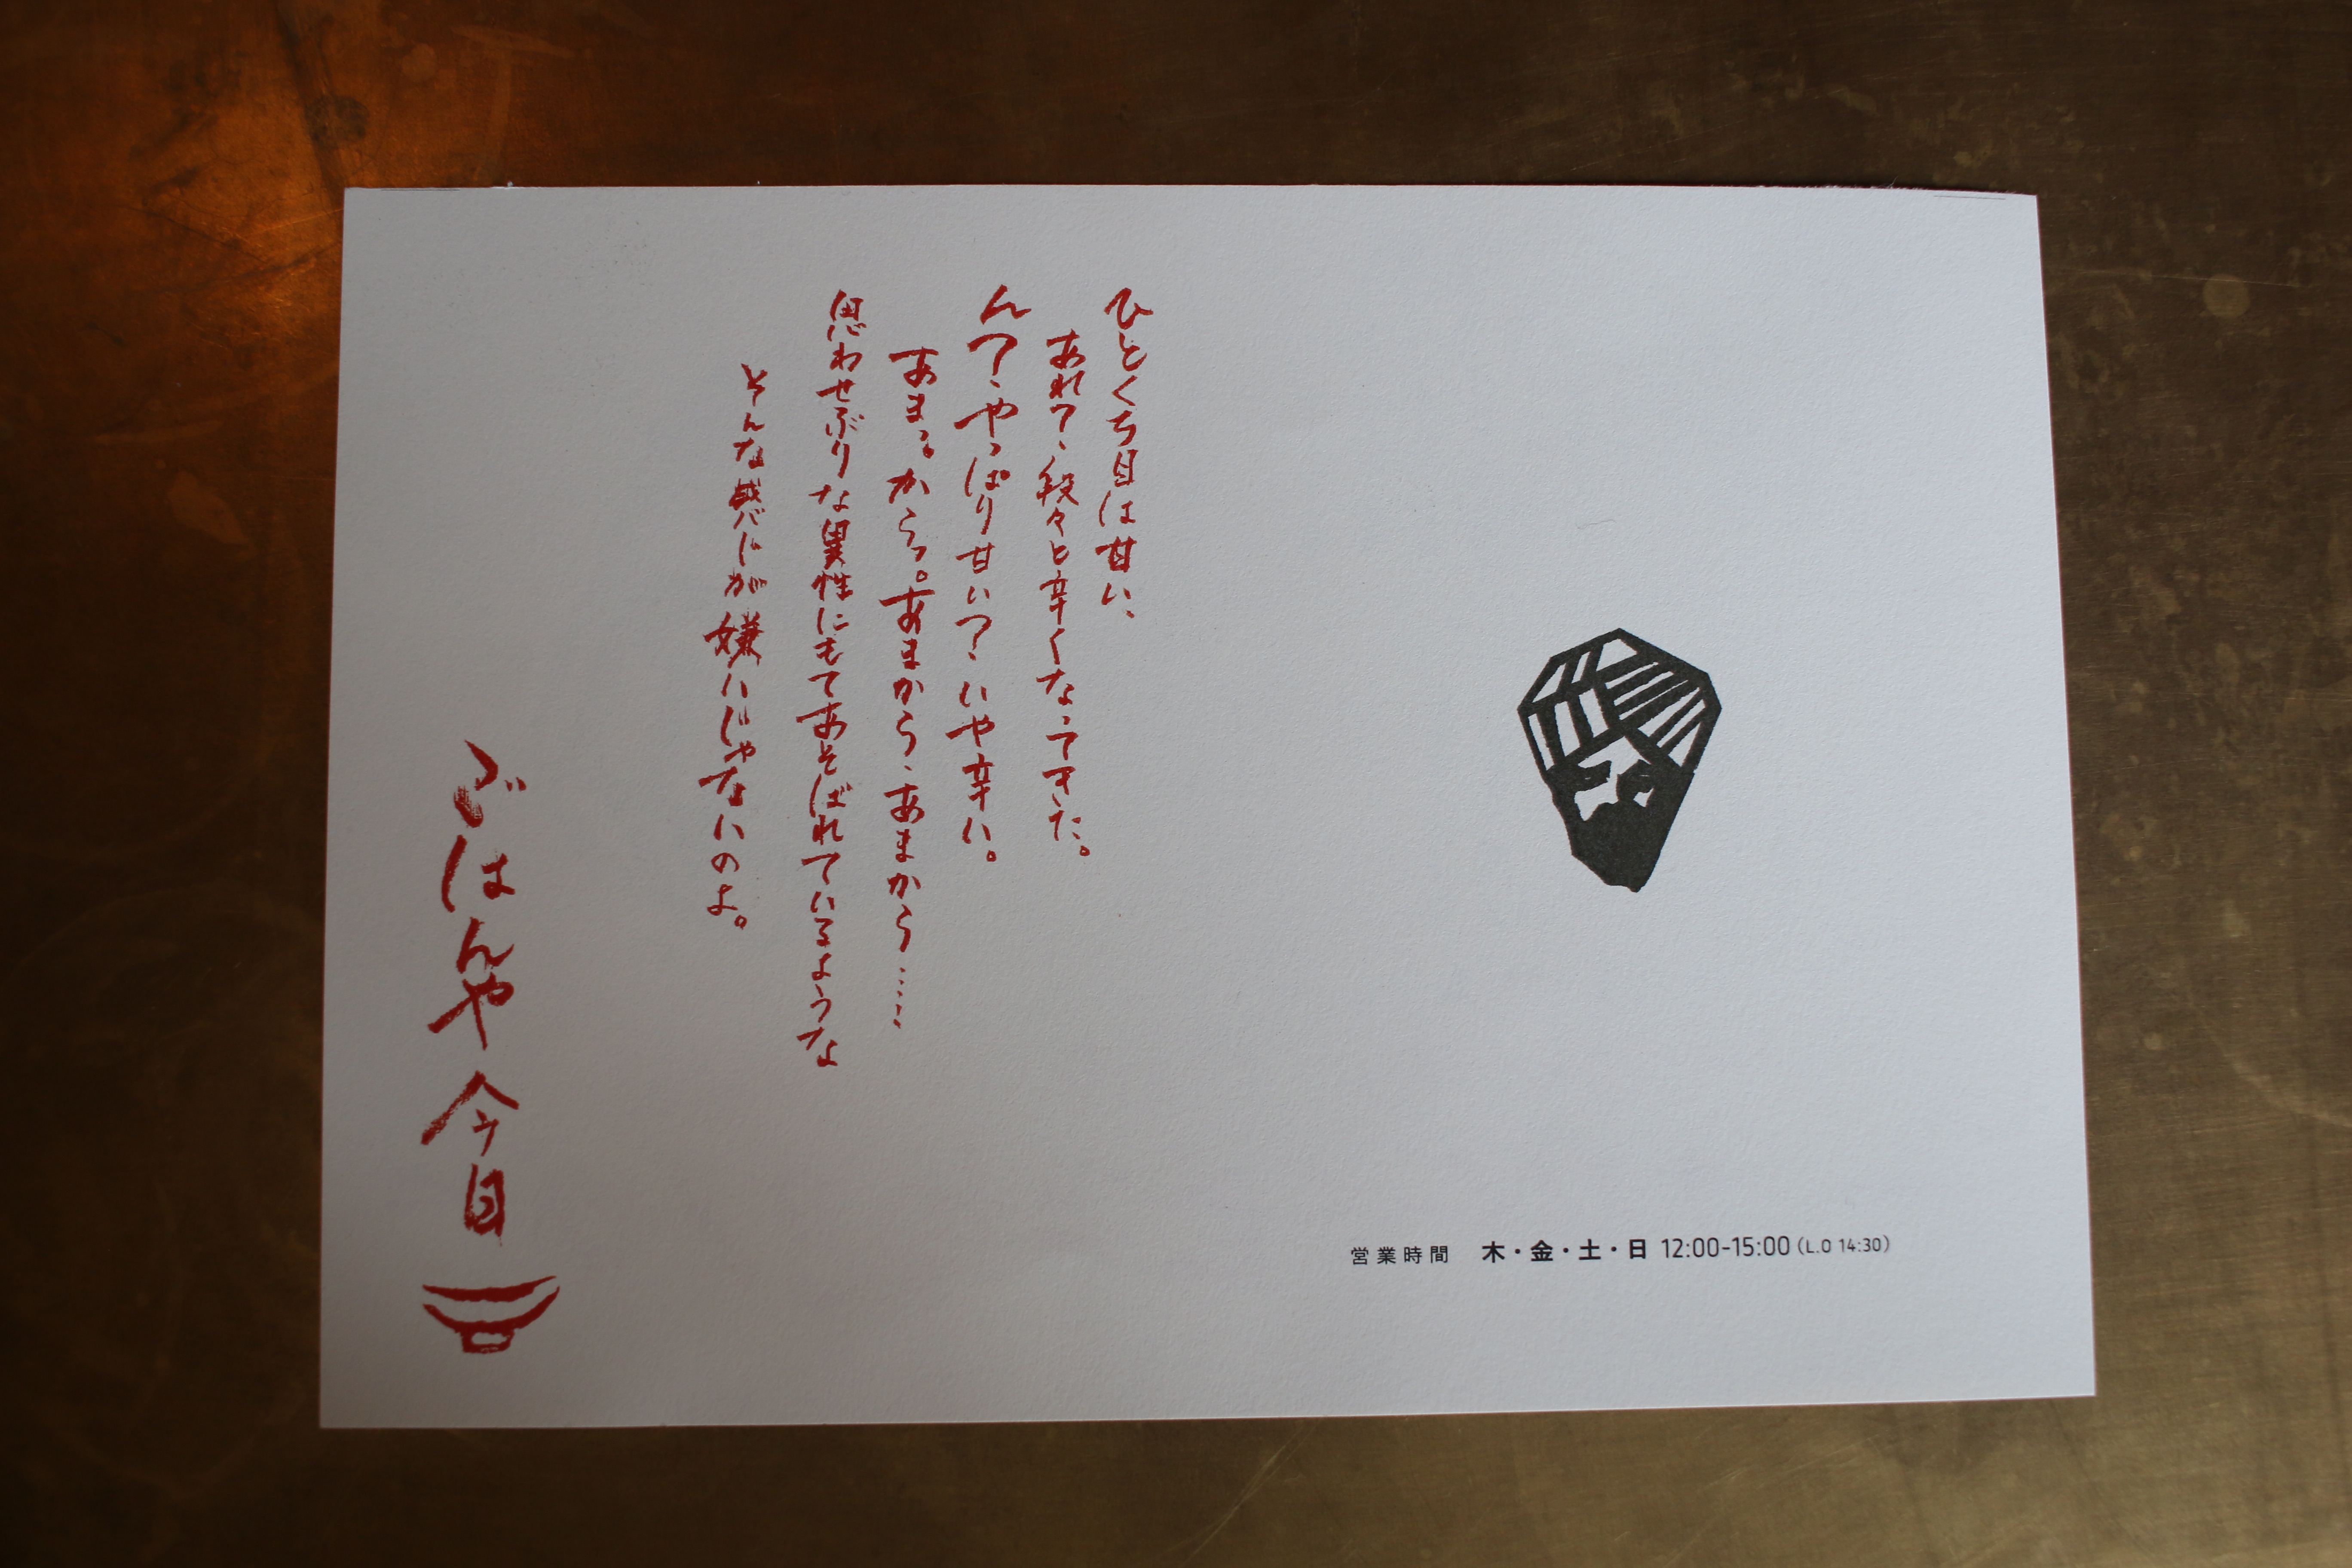 ひとくち目は甘い、
あれ？、段々と辛くなってきた。
ん？、やっぱり甘い？、いや辛い。
あまっ。からっ。あまから、あまから……
思わせぶりな異性にもてあそばれているような
そんな感じが嫌いじゃないのよ。
ごはんや 今日
営業時間 木・金・土・日 12:00-15:00（L.O 14:30）